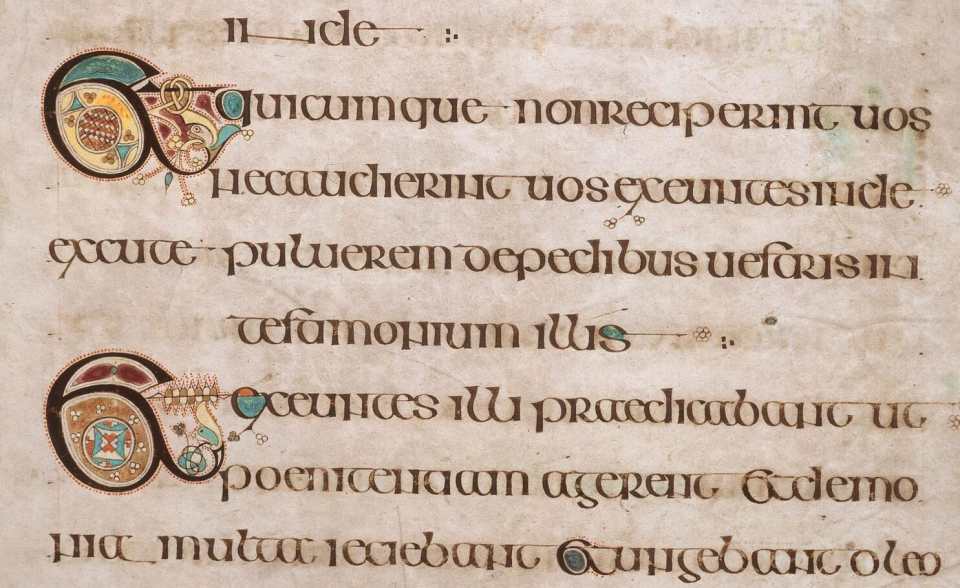 inde
Et quicumque non reciperint uos
nec audierint uos exeuntes inde
excute puluerem de pedibus uestris in
testimonium illis
Et exeuntes illi praedicabant ut
poenitentiam agerent et demo
nia multa ieciebant et ungebant oleo